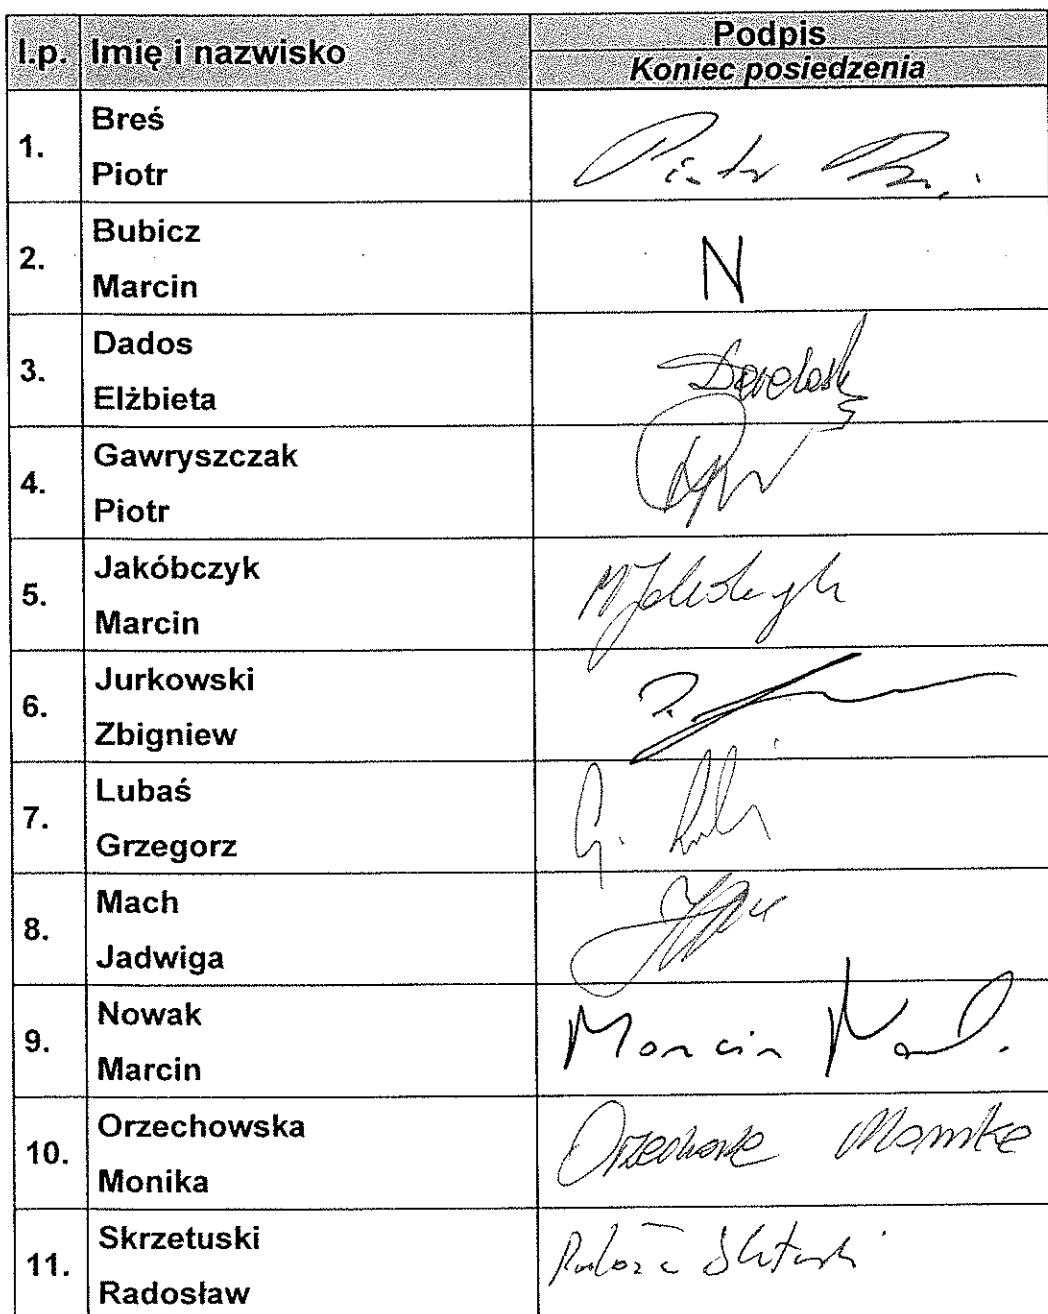 l.p. Imię i nazwisko Podpis
Koniec posiedzenia
1. Breś
Piotr
Piotr
2. Bubicz
Marcin
N
3. Dados
Elżbieta
4. Gawryszczak
Piotr
5. Jakóbczyk
Marcin
6. Jurkowski
Zbigniew
7. Lubaś
Grzegorz
G.
8. Mach
Jadwiga
9. Nowak
Marcin
Marcin
10. Orzechowska
Monika
Monika
11. Skrzetuski
Radosław